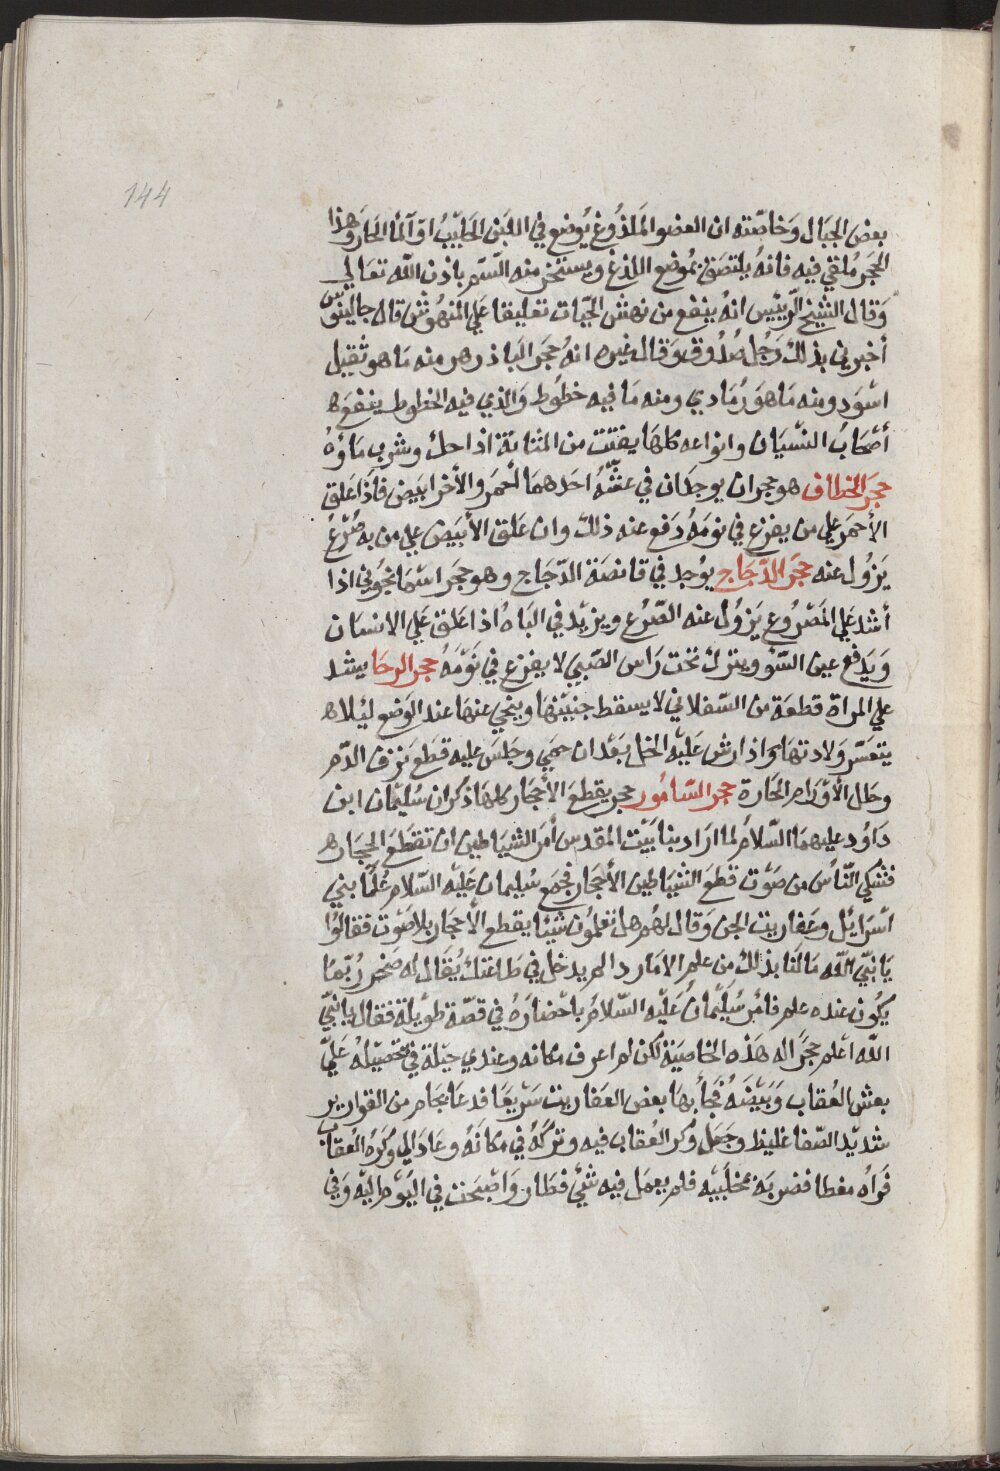 144
بعض الجبال وَخاصّته ان العضو المَلذُوغ يُوضع في اللبَن الحَليْبُ اوْ آلمأ الحَار وَهذا
الحجَر مُلقي فيه فانهُ يلتصَق بمُوضع اللدغ ويستخرَ منه السّم باذن الله تعَالي
وَقال الشيْخ الرّيئيس انهُ ينفع من نهش الحيّات تعليقا عَلي المنهُوش قال جالينوس
أخبرني بذلك رَجُل صدُوق وَقال غيره انهُ حجَر البَاذ زهر منه مَا هو ثقيل
اسْوَد ومنه مَا هوَ رُمَادي ومنه مَا فيه خطوُط وَالذي فيه الخطوط ينفعَ
أصْحَابُ النسْيَان وانواعه كلهَا يفتت من المثانَة اذا حك وشرب مَاؤهُ
حجرَ الخطاف هو حجران يوجَدَان في عشّهُ احَدهمَا أحمَر والأخر ابيَض فأذا علق
الأحمَر علي من يفزع في نومَهُ دَفع عنه ذلك وان عَلق الأبيَض علي من به صَرْعُ
يَزوُل عنه حجَرَ الدّجَاج يوُجد في قانصَة الدّجَاج وهو حجَر اسْمَانجوُني اذا
أشد علي المَصْروُع يَزوُل عنه الصّرع ويزيْد في البَاه اذا علق عَلي الانسَان
وَيَدفع عين السّو ويترك تحت رَاس الصّبي لا يفزع في نوْمَهُ حجر الرحَا يشد
علي المراة قطعَة من السّفلاني لا يسقط جنيْنهَا وينحي عنهَا عند الوَضع ليْلا
يتعسّر وَلادتهَا واذا رش عَليْه الخل بَعْد ان حمي وجَلسَ عليه قطعَ نزف الدّم
وحلل الأوْرَام الحَارة حجر السّامُور حجر يقطع الأحجَار كلهَا ذكر ان سُليْمَان ابن
دَاوُد عليهمَا السّلامُ لما ارَاد بنا بيْت المقدس أمَر الشيَاطين ان تقطَع الحجَاره
فشكي النّاسُ من صَوْت قطعَ الشيَاطين الأحجَار فجمَع سُليمان عَليْه السّلام عُلمَا بني
اسْرَائيْل وعَفاريْت الجن وَقال لهُم هل تعلموُن شيئا يقطع الأحجَار بلا صَوْت فقالوُا
يَا نبيّ الله مَا لنَا بذلك من علم الا مَارد لم يدخل في طَاعتك يُقال له صَخر رُبّمَا
يكوُن عنده علم فامر سُليْمانُ عَليْه السّلامُ باحْضارَهُ في قصّة طوْيلة فقال يا نبيّ
الله اعْلم حجَرًا له هَذه الخاصيَة لكن لم اعرف مكانه وعندي حيْلة في تحصيْلهُ عَليّ
بعش العُقاب وَبَيْضَهُ فجأ بهَا بعض العفاريت سَريعًا فدعَا بجام من القوارير
شديْد الصّفا غليظ وجعَل وُكر العُقاب فيه وترَكهُ في مكانَهُ وعَاد الي وُكرَهُ العُقاب
فرَاهُ مغطا فضربَه بمخلبيْه فلم يعمَل فيه شيْ فطار وَاصْبحَت في اليَوْم اليه وَفي